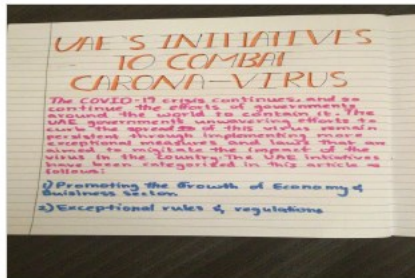 UAE'S INITIATIVES
TO COMBAT
CARONA-VIRUS
The COVID-19 crisis continues, and so
continue the efforts of governments
around the world to contain it. The
UAE government's unwavering efforts to
curb the spread of this virus remain
persistent through implementing more
exceptional measures and laws that are
aimed to mitigate the impact of the
virus in the country. The UAE initiatives
have been categorized in this article as
follows:
1) Promoting the Growth of Economy &
Business sector
2) Exceptional rules & regulations